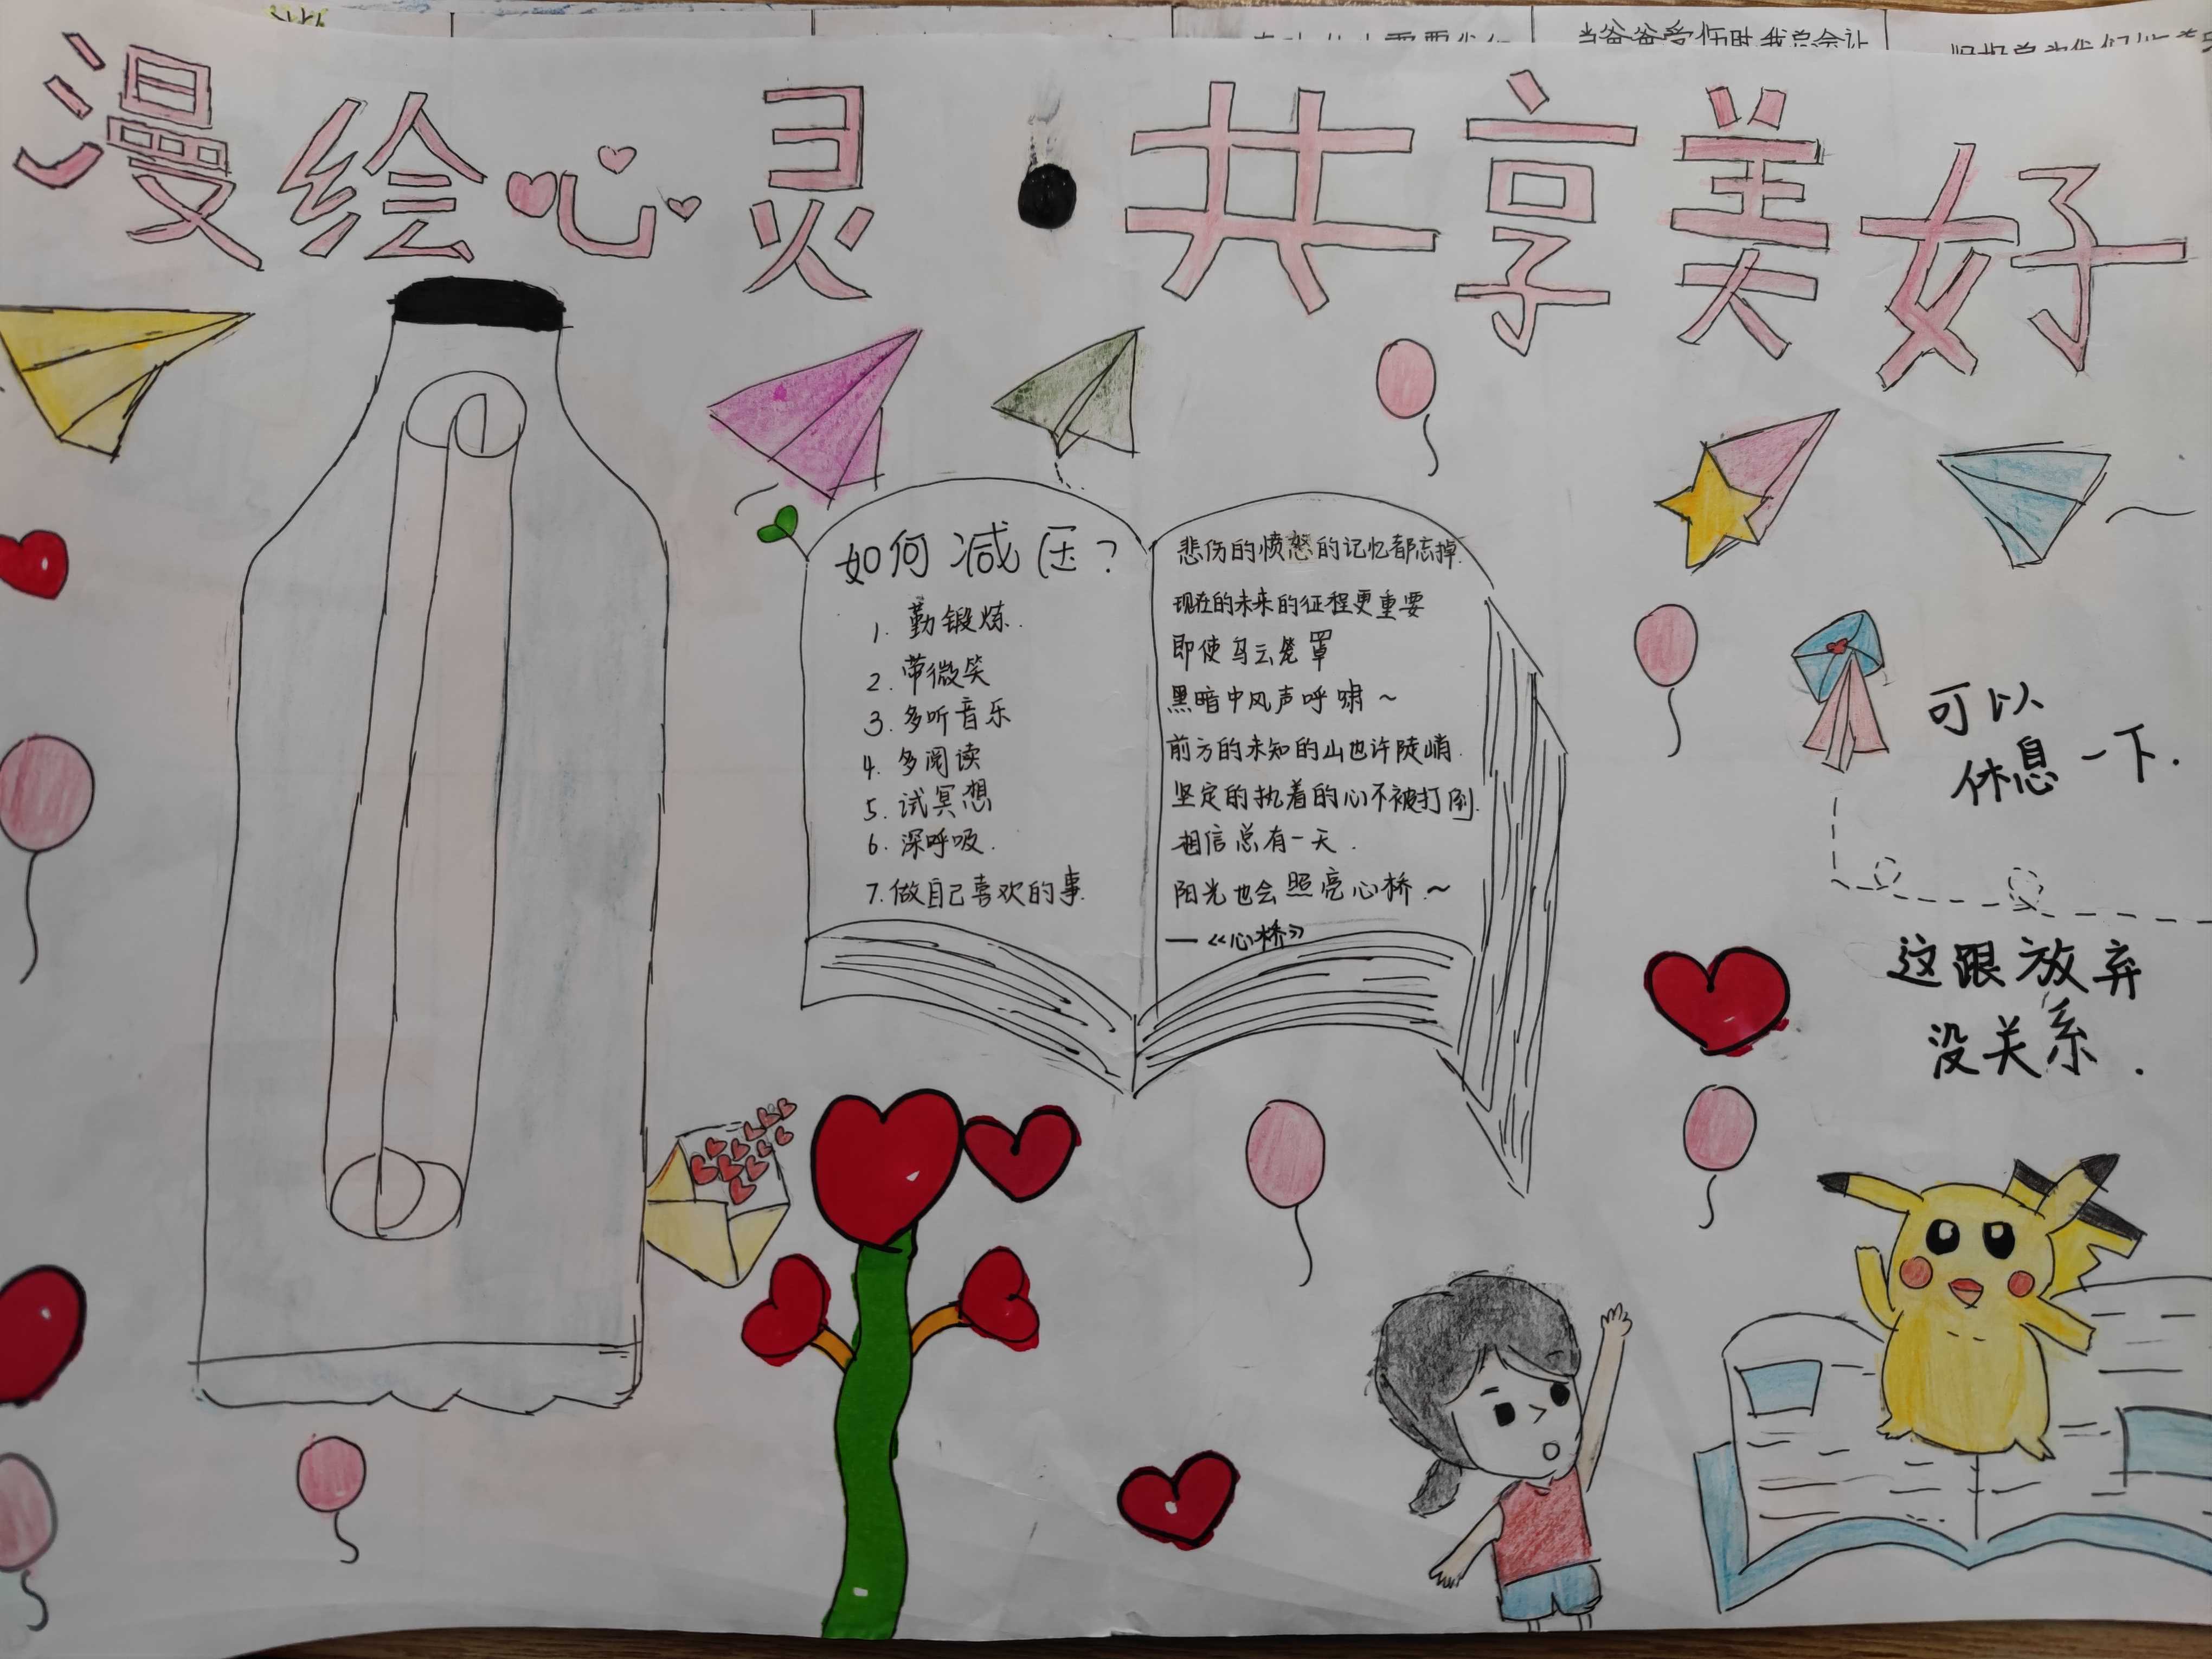 当爸爸受伤时我总会让
漫绘心灵·共享美好
如何减压?
1. 勤锻炼.
2. 带微笑
3. 多听音乐
4. 多阅读
5. 试冥想
6. 深呼吸.
7. 做自己喜欢的事.
悲伤的愤怒的记忆都忘掉.
现在的未来的征程更重要
即使乌云笼罩
黑暗中风声呼啸~
前方的未知的山也许陡峭.
坚定的执着的心不被打倒.
相信总有一天.
阳光也会照亮心桥.~
—《心桥》
可以
休息一下.
这跟放弃
没关系.